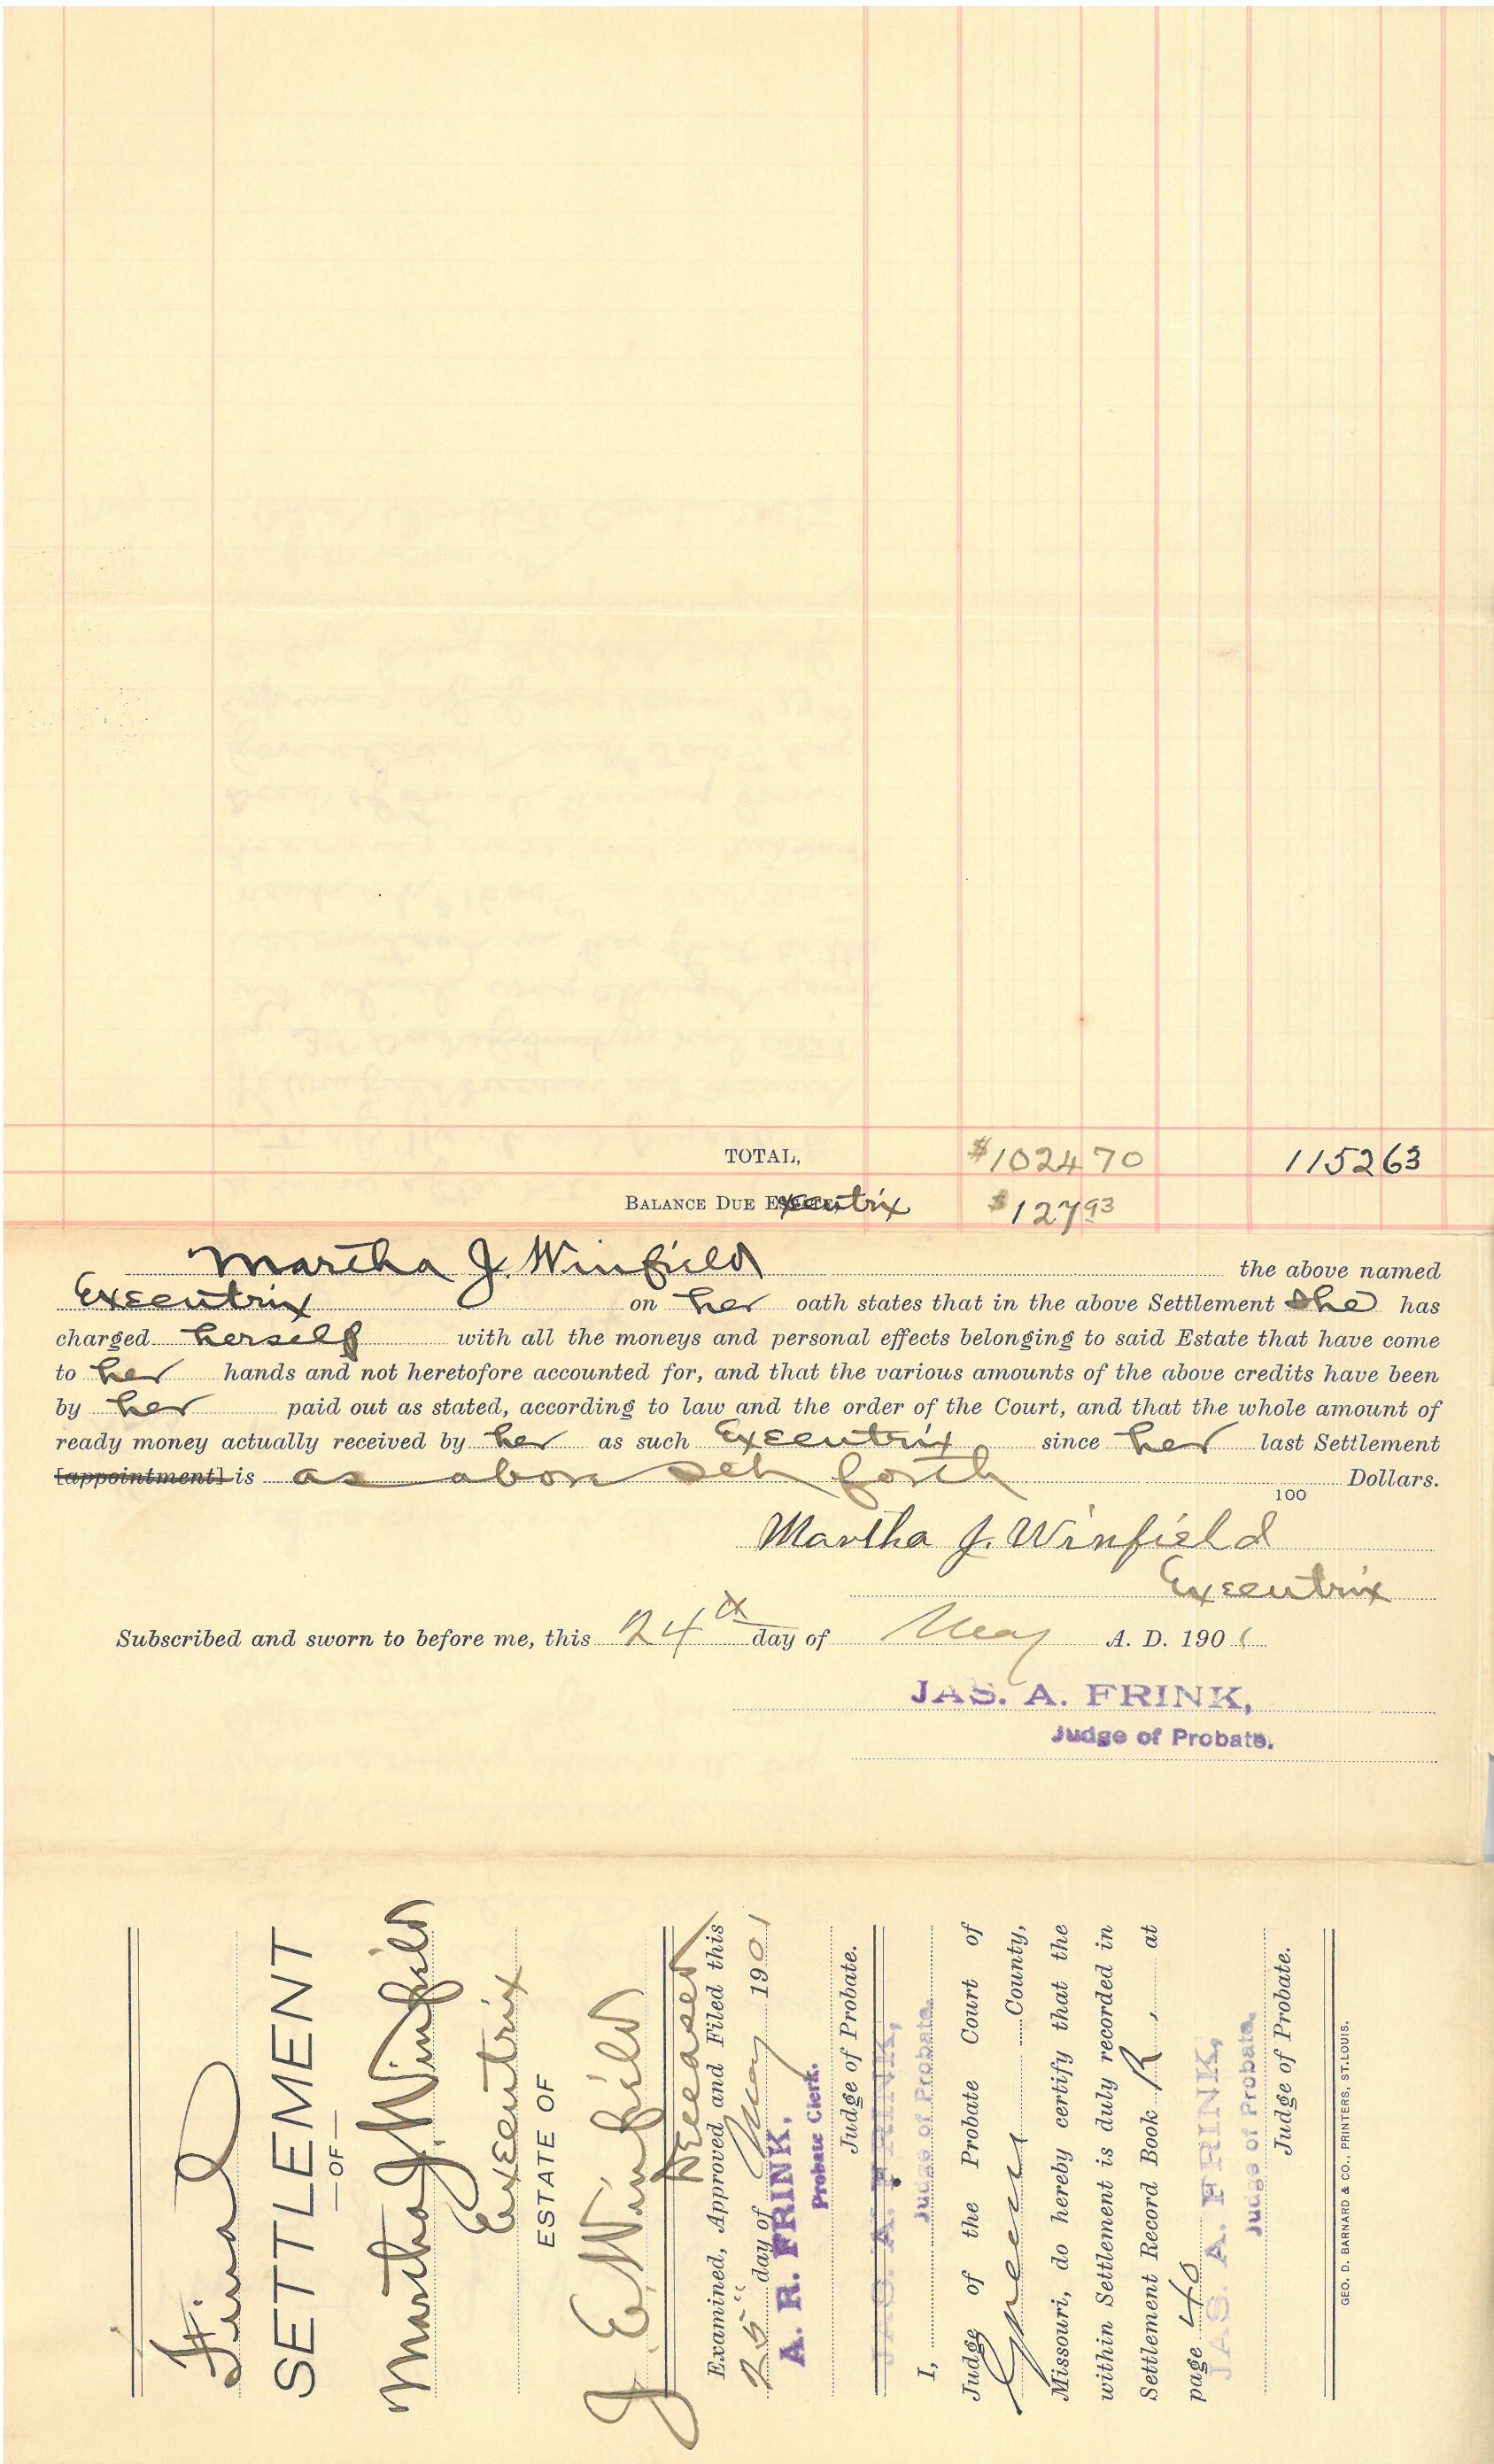 TOTAL, $1024 70 1152 63
BALANCE DUE Executrix $127 93
Martha J. Winfield the above named
Executrix on her oath states that in the above Settlement she has
charged herself with all the moneys and personal effects belonging to said Estate that have come
to her hands and not heretofore accounted for, and that the various amounts of the above credits have been
by her paid out as stated, according to law and the order of the Court, and that the whole amount of
ready money actually received by her as such Executrix since her last Settlement
[appointment] is as above set forth Dollars.
100
Martha J. Winfield
Executrix
Subscribed and sworn to before me, this 24th day of May A. D. 1901
JAS. A. FRINK,
Judge of Probate.
Final
SETTLEMENT
—OF—
Martha J. Winfield
Executrix
ESTATE OF
J. E. Winfield
Deceased
Examined, Approved and Filed this
25" day of May 1901
A. R. FRINK,
Probate Clerk.
Judge of Probate.
JAS. A. FRINK,
Judge of Probate.
I,
Judge of the Probate Court of
Greene County,
Missouri, do hereby certify that the
within Settlement is duly recorded in
Settlement Record Book R, at
page 40
JAS. A. FRINK,
Judge of Probate.
Judge of Probate.
GEO. D. BARNARD & CO., PRINTERS, ST. LOUIS.